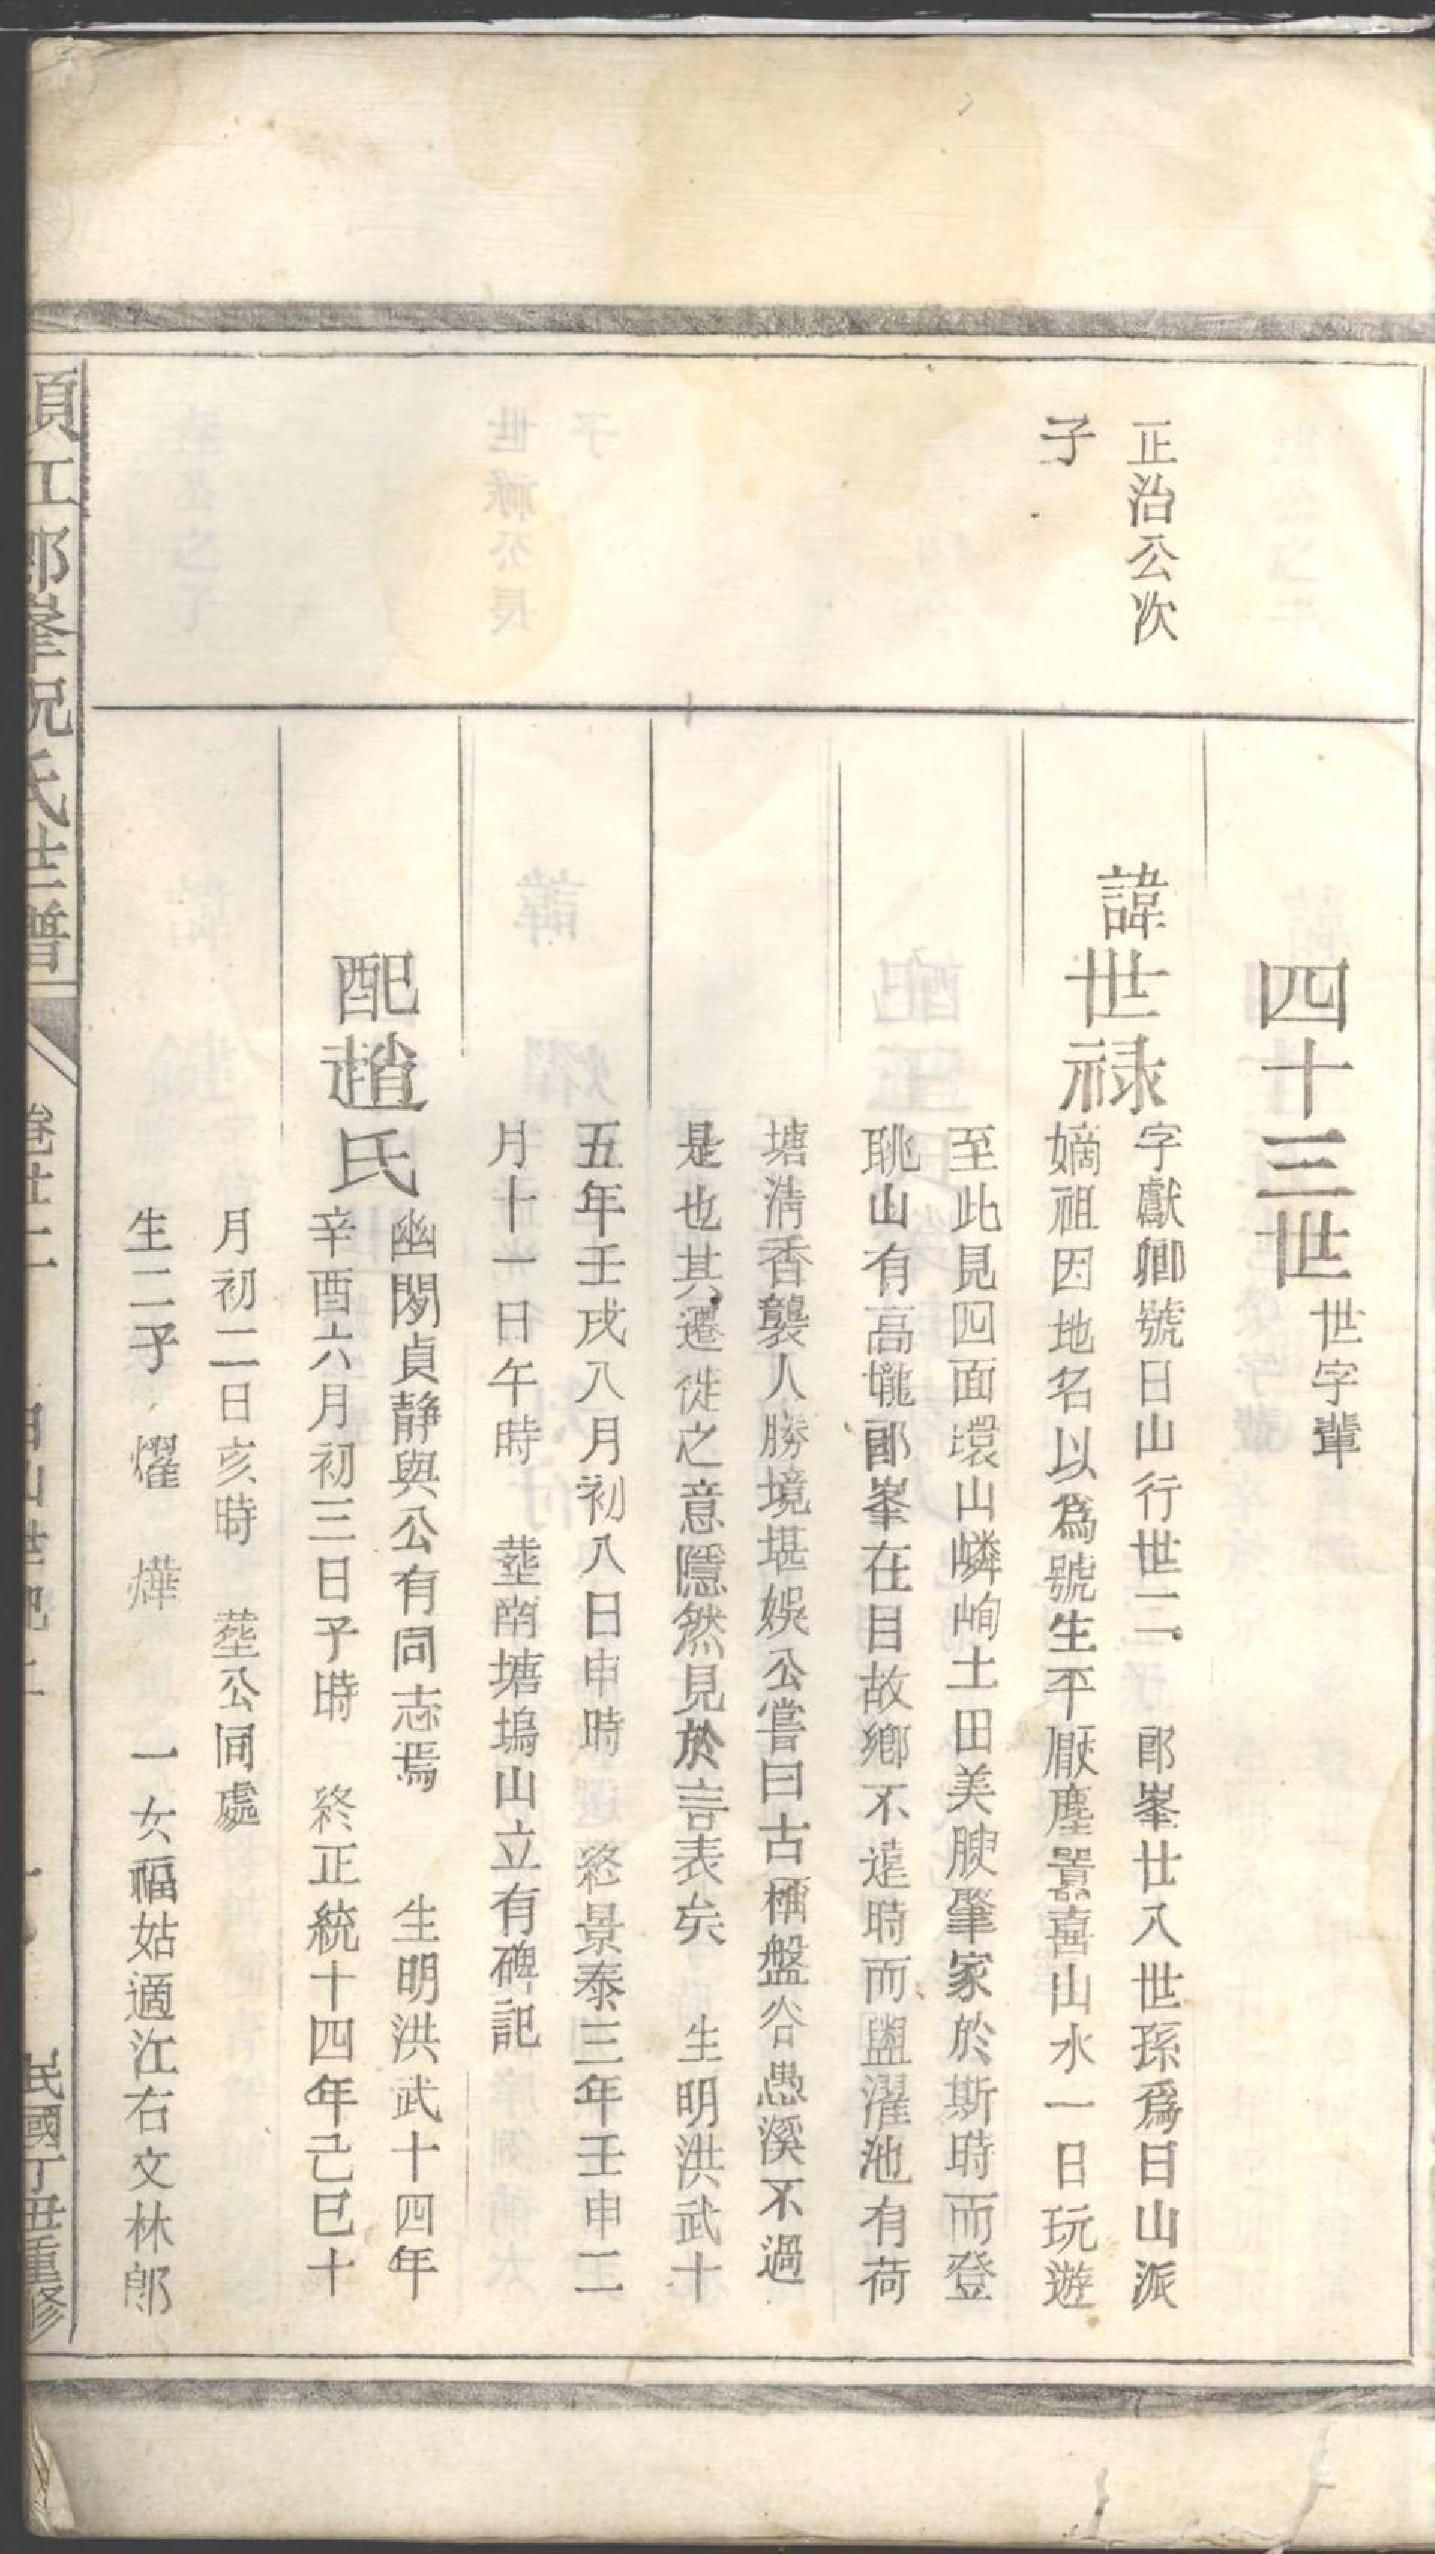 四十三世世字輩
正治公次
子
諱世禄
字獻卿號日山行世二 郎峯廿八世孫爲日山派
嫡祖因地名以爲號生平厭塵囂喜山水一日玩遊
至此見四面環山嶙峋土田美腴肇家於斯時而登
眺山有高壠郎峯在目故鄉不遠時而盥濯池有荷
塘清香襲人勝境堪娛公嘗曰古稱盤谷愚溪不過
是也其遷徙之意隱然見於言表矣 生明洪武十
五年壬戌八月初八日申時 終景泰三年壬申二
月十一日午時 塟南塘塢山立有碑記
配趙氏
幽閒貞靜與公有同志焉 生明洪武十四年
辛酉六月初三日子時 終正統十四年己巳十
月初二日亥時 塟公同處
生二子 燿 燁 一女福姑適江右文林郎
須江郎峯祝氏世譜
卷廿二
日山世
民國丁丑重修